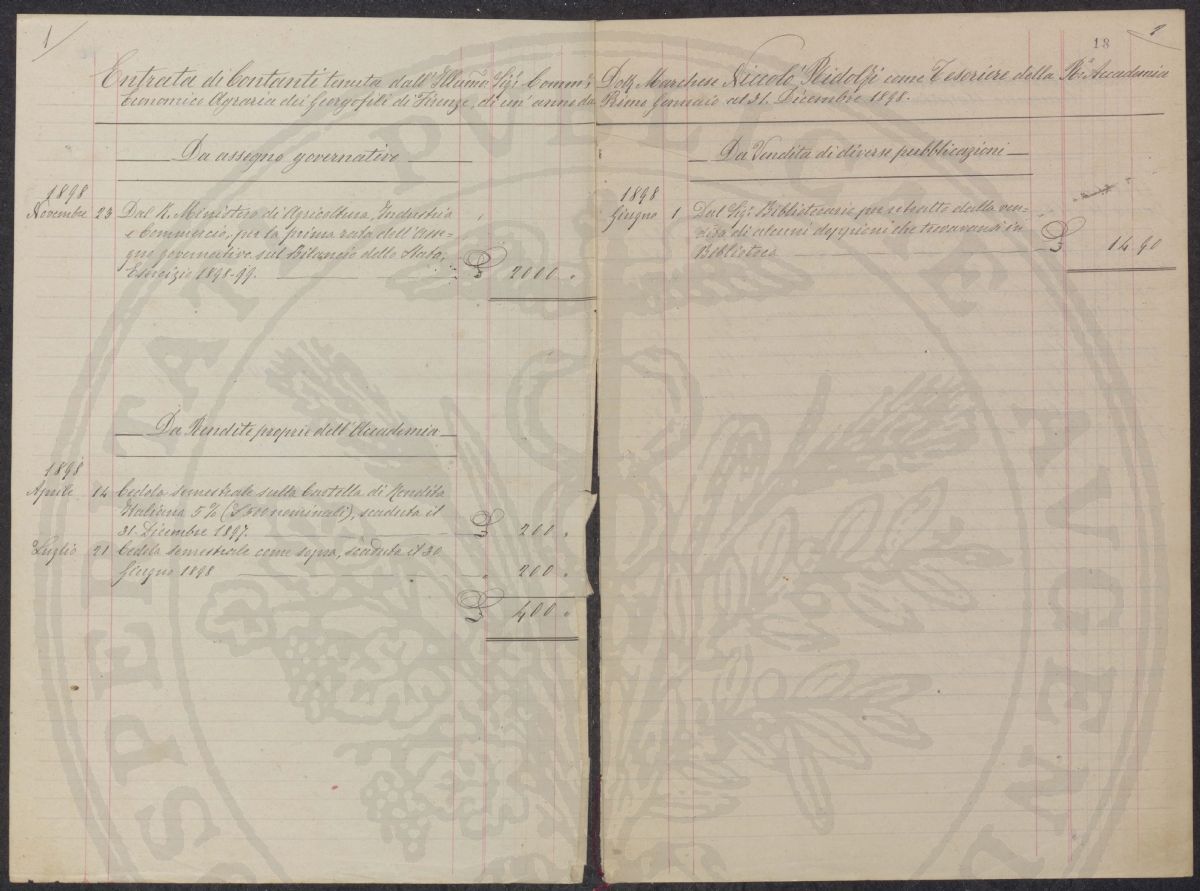 1
18
1
Entrata di Contanti tenuta dall' Illmo. Sigr. Comm. Dott. Marchese Niccolò Ridolfi come Tesoriere della Ra. Accademia
Economico Agraria dei Georgofili di Firenze, di un' anno dal Primo Gennaio al 31. Dicembre 1898.
Da assegno governativo
1898
Novembre 23 Dal R. Ministero di Agricoltura, Industria
e Commercio, per la prima rata dell' asse-
gno governativo sul Bilancio dello Stato,
Esercizio 1898-99. £ 2000 "
Da Rendite proprie dell' Accademia
1898
Aprile 14 Cedola semestrale sulla Cartella di Rendita
Italiana 5% (£ 500 nominali), scaduta il
31. Dicembre 1897. £ 200 "
Luglio 21 Cedola semestrale come sopra, scaduta il 30
Giugno 1898 " 200 "
£ 400 "
Da Vendita di diverse pubblicazioni
1898
Giugno 1 Dal Sigr. Bibliotecario per retratto dalla ven-
dita di alcuni che trovavansi in
Biblioteca £ 14 90
PUBLICAE
PROSPERITATI AVGENDAE